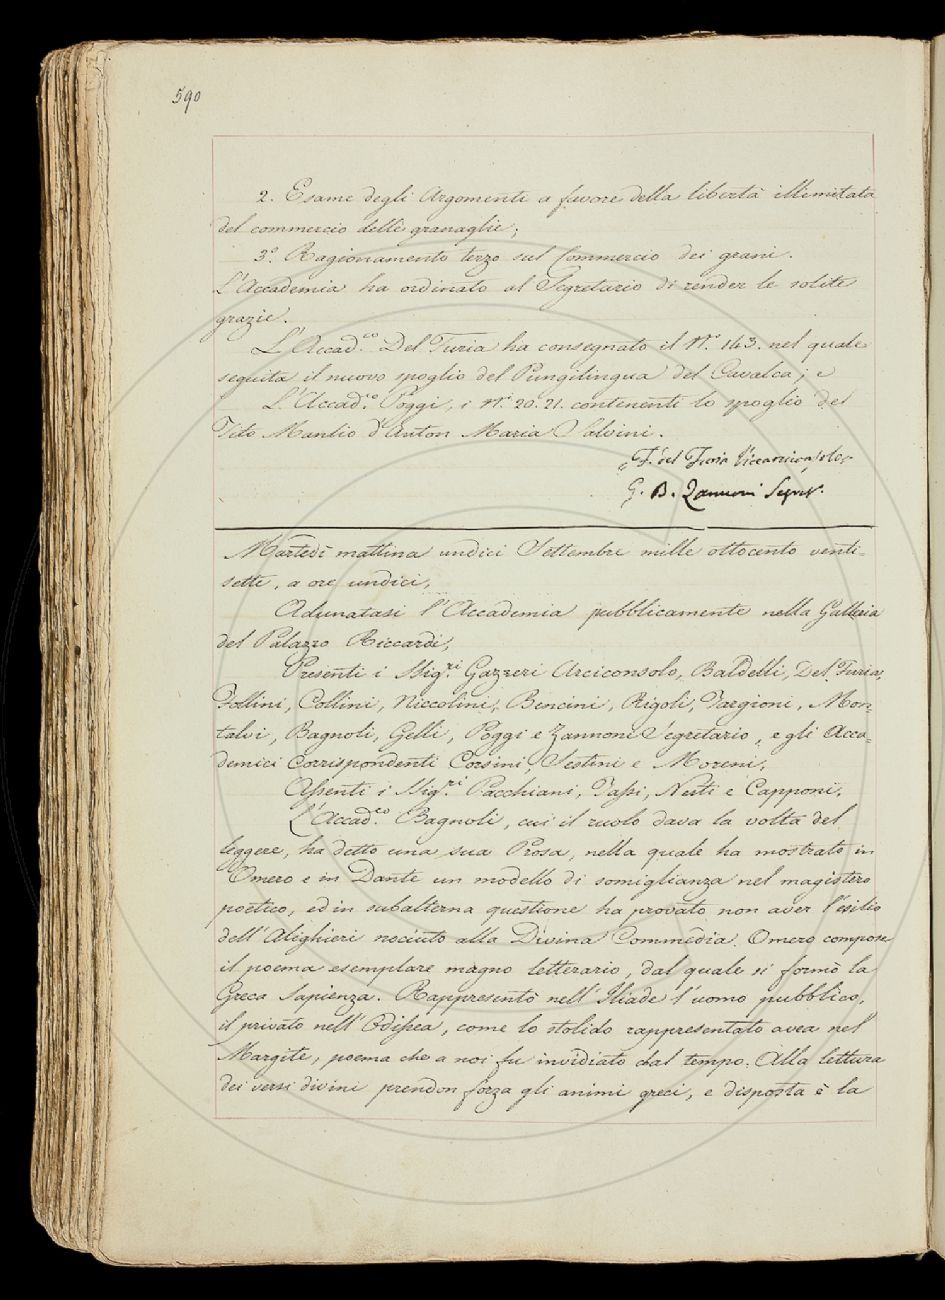 590
2. Esame degli Argomenti a favore della libertà illimitata
del commercio delle granaglie;
3.º Ragionamento terzo sul Commercio dei grani.
L'Accademia ha ordinato al Segretario di render le solite
grazie.
L'Accad.co Del Furia ha consegnato il N.º 143. nel quale
seguita il nuovo spoglio del Pungilingua del Cavalca; e
L'Accad.co Poggi, i N.i 20. 21. contenenti lo spoglio del
Tito Manlio d'Anton Maria Salvini.
F. del Furia Vicearciconsolo
G. B. Zannoni Segret.
Martedì mattina undici Settembre mille ottocento venti=
sette, a ore undici,
Adunatasi l'Accademia pubblicamente nella Galleria
del Palazzo Riccardi,
Presenti i Sig.ri Gazzeri Arciconsolo, Baldelli, Del Furia,
Follini, Collini, Niccolini, Bencini, Rigoli, Targioni, Mon=
talvi, Bagnoli, Gelli, Poggi e Zannoni Segretario, e gli Acca=
demici Corrispondenti Corsini, Sestini e Moreni,
Assenti i Sig.ri Pacchiani, Tassi, Nesti e Capponi,
L'Accad.co Bagnoli, cui il ruolo dava la volta del
leggere, ha detto una sua Prosa, nella quale ha mostrato in
Omero e in Dante un modello di somiglianza nel magistero
poetico, ed in subalterna questione ha provato non aver l'esilio
dell'Alighieri nociuto alla Divina Commedia. Omero compose
il poema esemplare magno letterario, dal quale si formò la
Greca Sapienza. Rappresentò nell'Iliade l'uomo pubblico,
il privato nell'Odissea, come lo stolido rappresentato avea nel
Margite, poema che a noi fu invidiato dal tempo. Alla lettura
dei versi divini prendon forza gli animi greci, e disposta è la